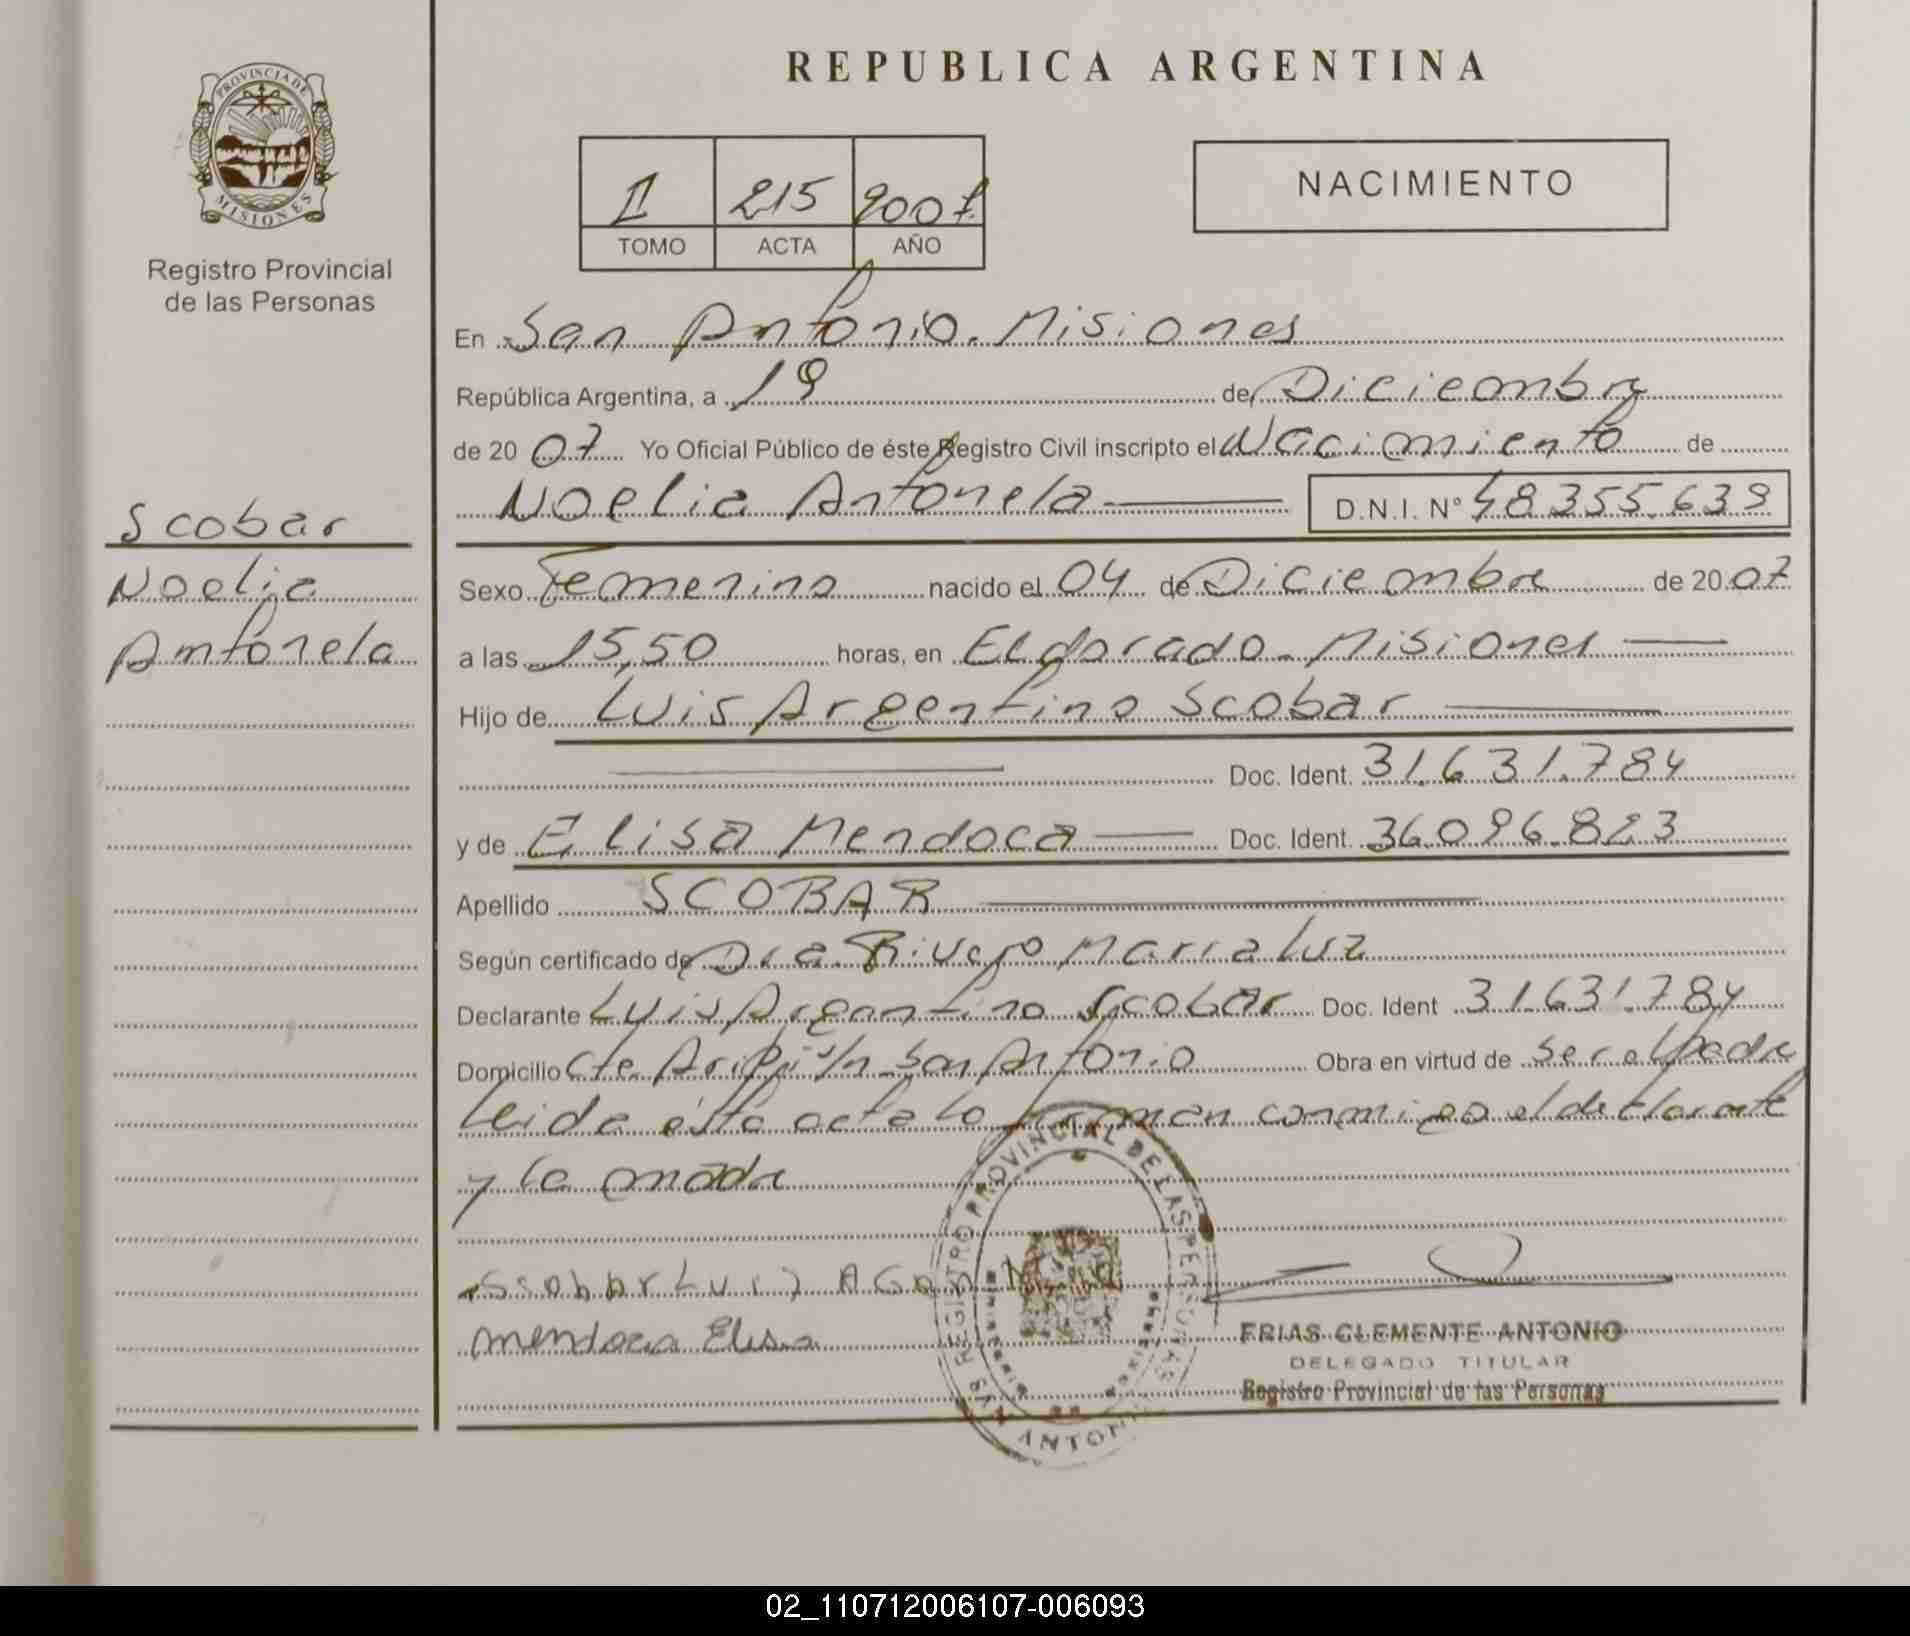 PROVINCIA DE
MISIONES
Registro Provincial
de las Personas
Scobar
Noelia
Antonela
REPUBLICA ARGENTINA
II 215 2007
TOMO ACTA AÑO
NACIMIENTO
En San Antonio. Misiones
República Argentina, a 19 de Diciembre
de 2007 Yo Oficial Público de éste Registro Civil inscripto el Nacimiento de
Noelia Antonela D.N.I. N° 48.355.639
Sexo Femenino nacido el 04 de Diciembre de 2007
a las 15,50 horas, en Eldorado. Misiones
Hijo de Luis Argentino Scobar
Doc. Ident. 31.631.784
y de Elisa Mendoca Doc. Ident. 36.096.823
Apellido SCOBAR
Según certificado de Dra. Maria Luz
Declarante Luis Argentino Scobar Doc. Ident 31631.784
Domicilio San Antonio Obra en virtud de ser el Padre
Leida ésta acta lo firman conmigo el declarante
y la madre
Mendoca Elisa
REGISTRO PROVINCIAL DE LAS PERSONAS
SAN ANTONIO
FRIAS CLEMENTE ANTONIO
DELEGADO TITULAR
Registro Provincial de las Personas
02_110712006107-006093